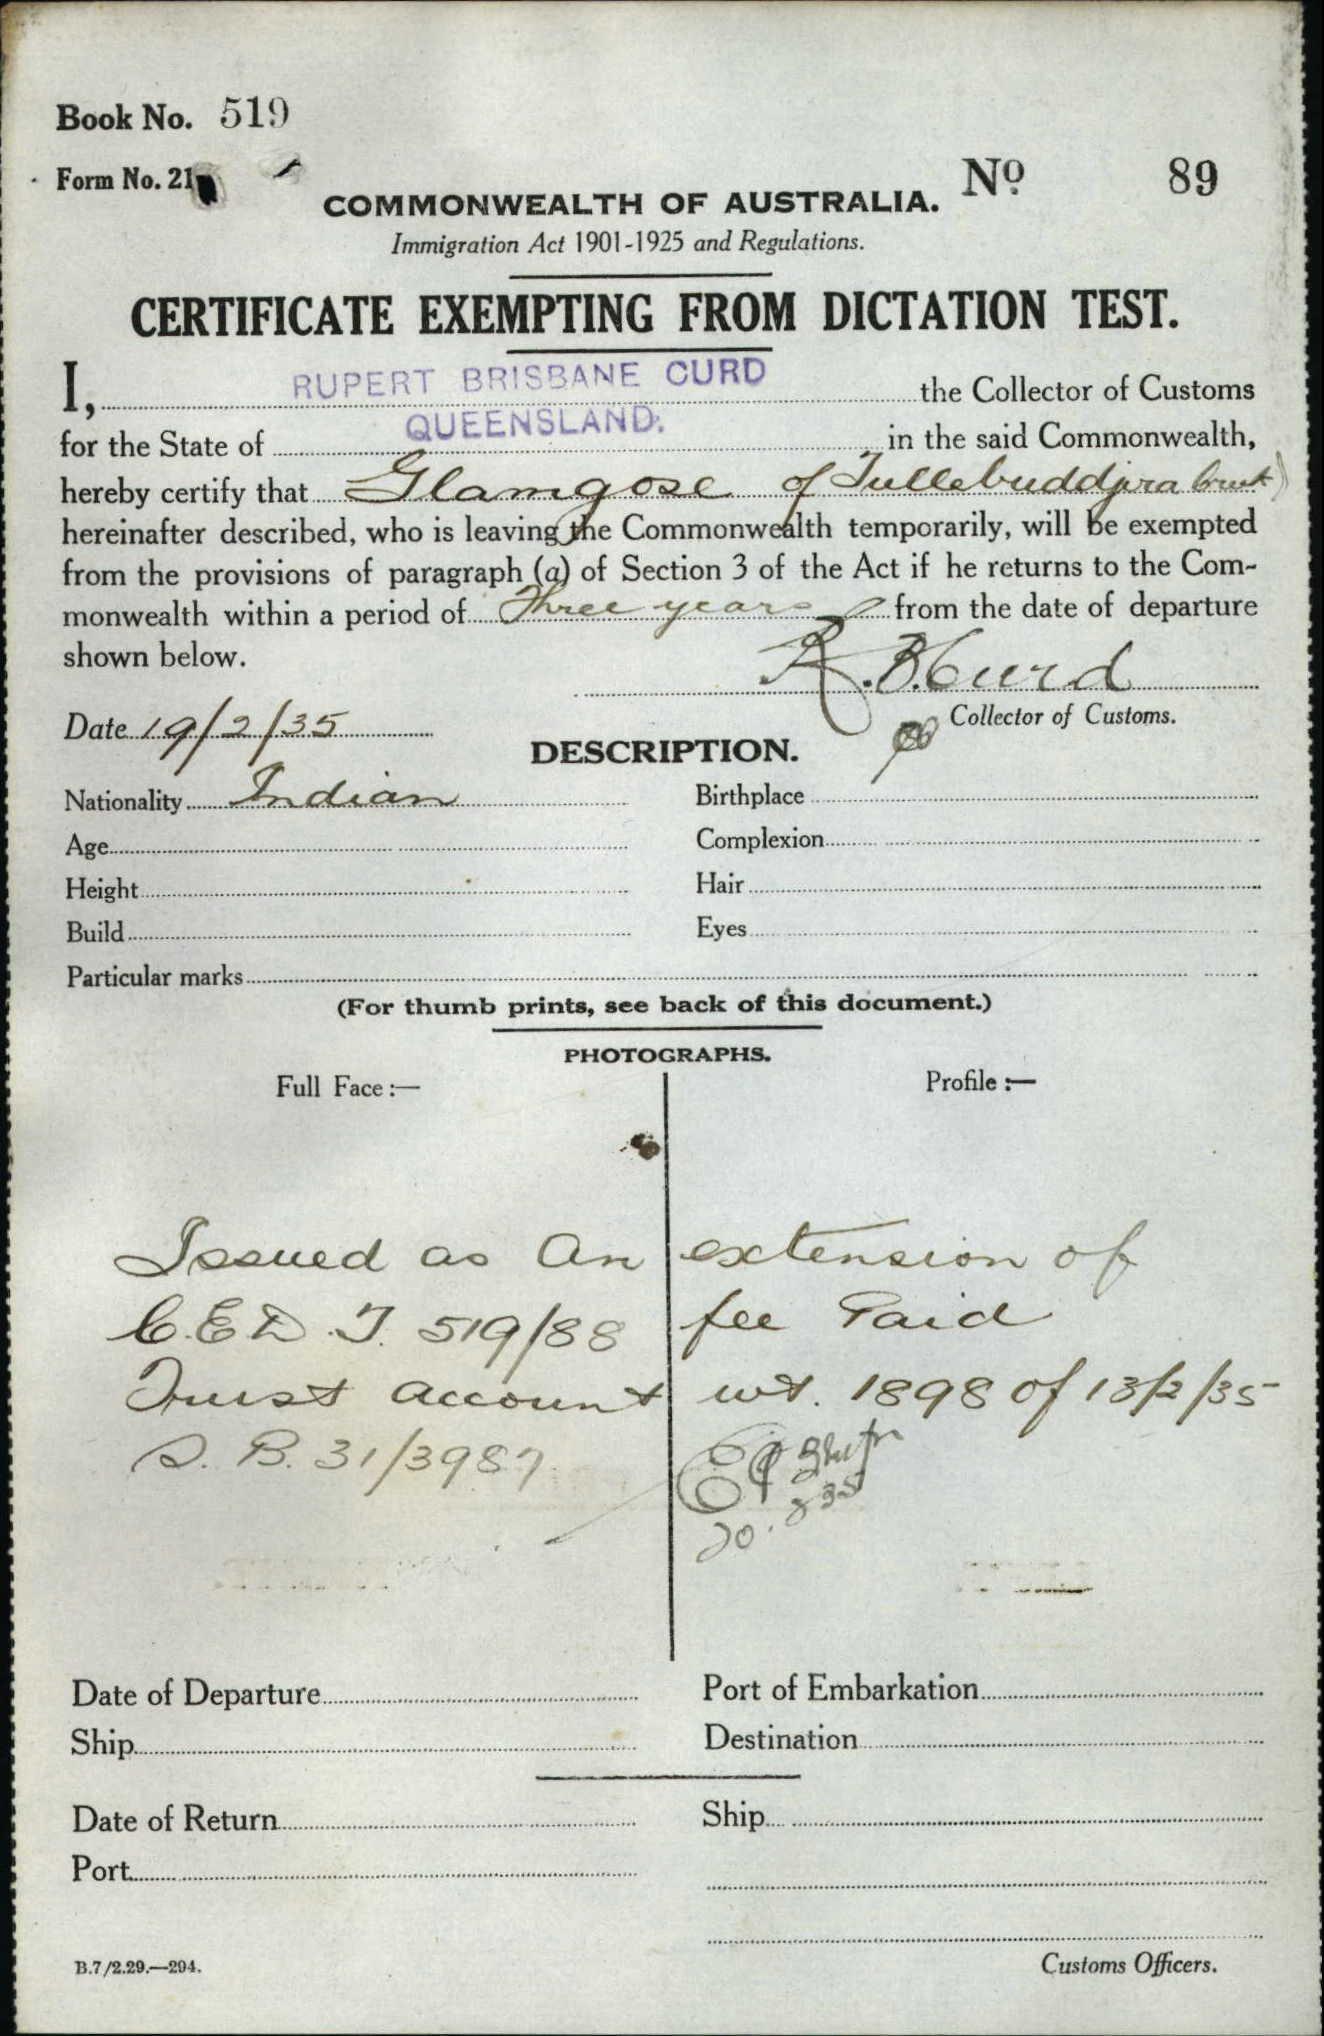 Book No. 519
Form No. 21
COMMONWEALTH OF AUSTRALIA. No. 89
Immigration Act 1901-1925 and Regulations.
CERTIFICATE EXEMPTING FROM DICTATION TEST.
I, RUPERT BRISBANE CURD the Collector of Customs
for the State of QUEENSLAND. in the said Commonwealth,
hereby certify that Glamgose of
hereinafter described, who is leaving the Commonwealth temporarily, will be exempted
from the provisions of paragraph (a) of Section 3 of the Act if he returns to the Com-
monwealth within a period of Three years from the date of departure
shown below.
R. B. Curd
Collector of Customs.
Date 19/2/35
DESCRIPTION.
Nationality Indian Birthplace
Age Complexion
Height Hair
Build Eyes
Particular marks
(For thumb prints, see back of this document.)
PHOTOGRAPHS.
Full Face :— Profile :—
Issued as An extension of
C.E.D.T. 519/88 fee Paid
Trust Account wt. 1898 of 13/2/35
S. B. 31/3987
Date of Departure Port of Embarkation
Ship Destination
Date of Return Ship
Port
B.7/2.29.—294. Customs Officers.